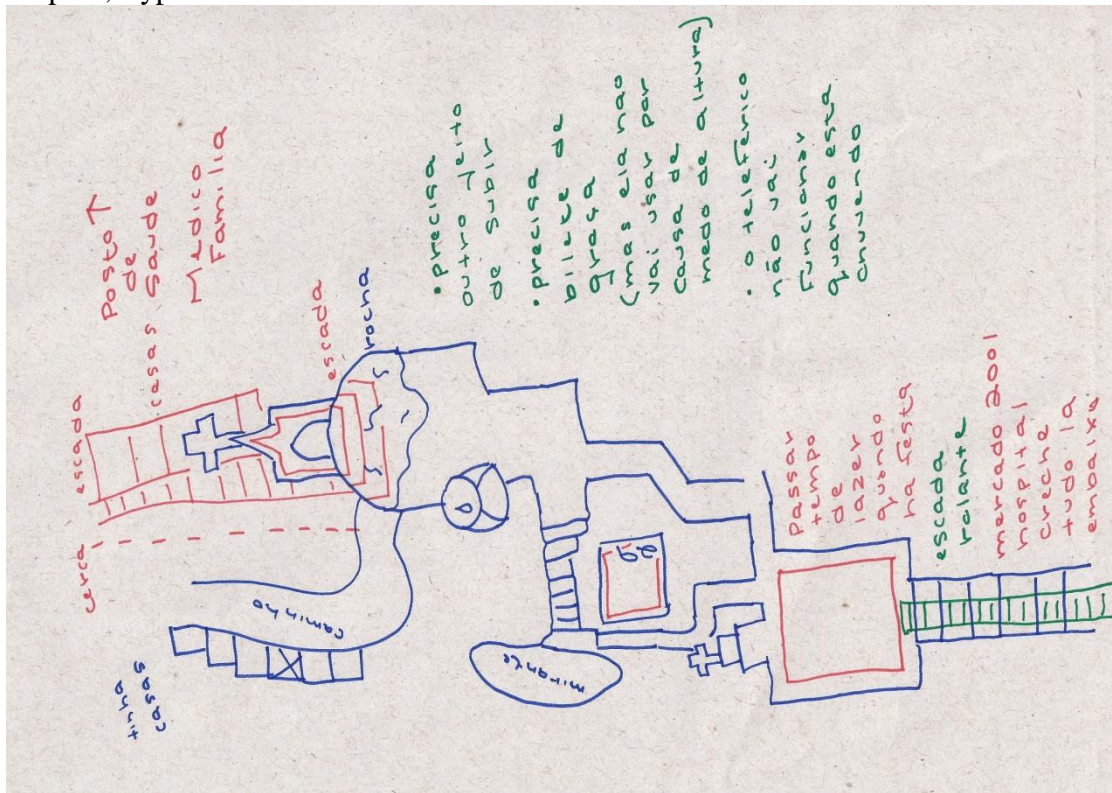 cerca
escada
casas
Posto ↑
de
Saude
Medico
Familia
escada
rocha
tinha
casas
caminho
mirante
•precisa
outro jeito
de subir
•precisa
bilete de
graça
(mas ela não
vai usar por
causa de
medo de altura)
• o teleferico
não vai
funcionar
quando esta
chuvendo
passar
tempo
de
lazer
quando
ha festa
escada
rolante
mercado 2001
hospital
creche
tudo la
embaixo